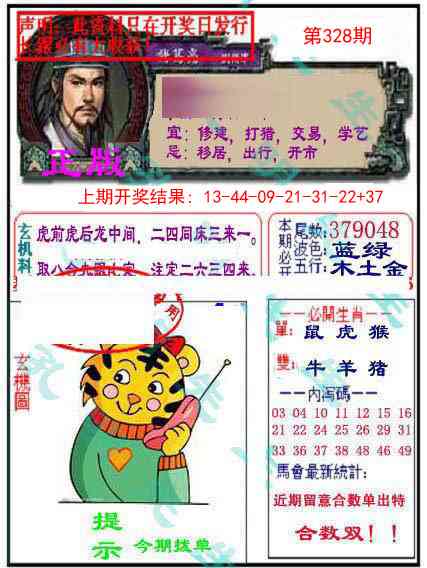 声明：此资料只在开奖日发行
第328期
宜：修建，打猎，交易，学艺
忌：移居，出行，开市
正版
上期开奖结果：13-44-09-21-31-22+37
玄机料
虎前虎后龙中间，二四同床三来一。
注定二六三四来.
本期必开
尾数:379048
波色:蓝绿
五行:木土金
玄機圖
提示
今期拔单
——必開生肖——
單: 鼠 虎 猴
雙: 牛 羊 猪
——内泻码——
03 04 10 11 12 15 16
21 22 24 25 26 29 31
33 36 37 38 46 48 49
馬會最新統計:
近期留意合数单出特
合数双！！